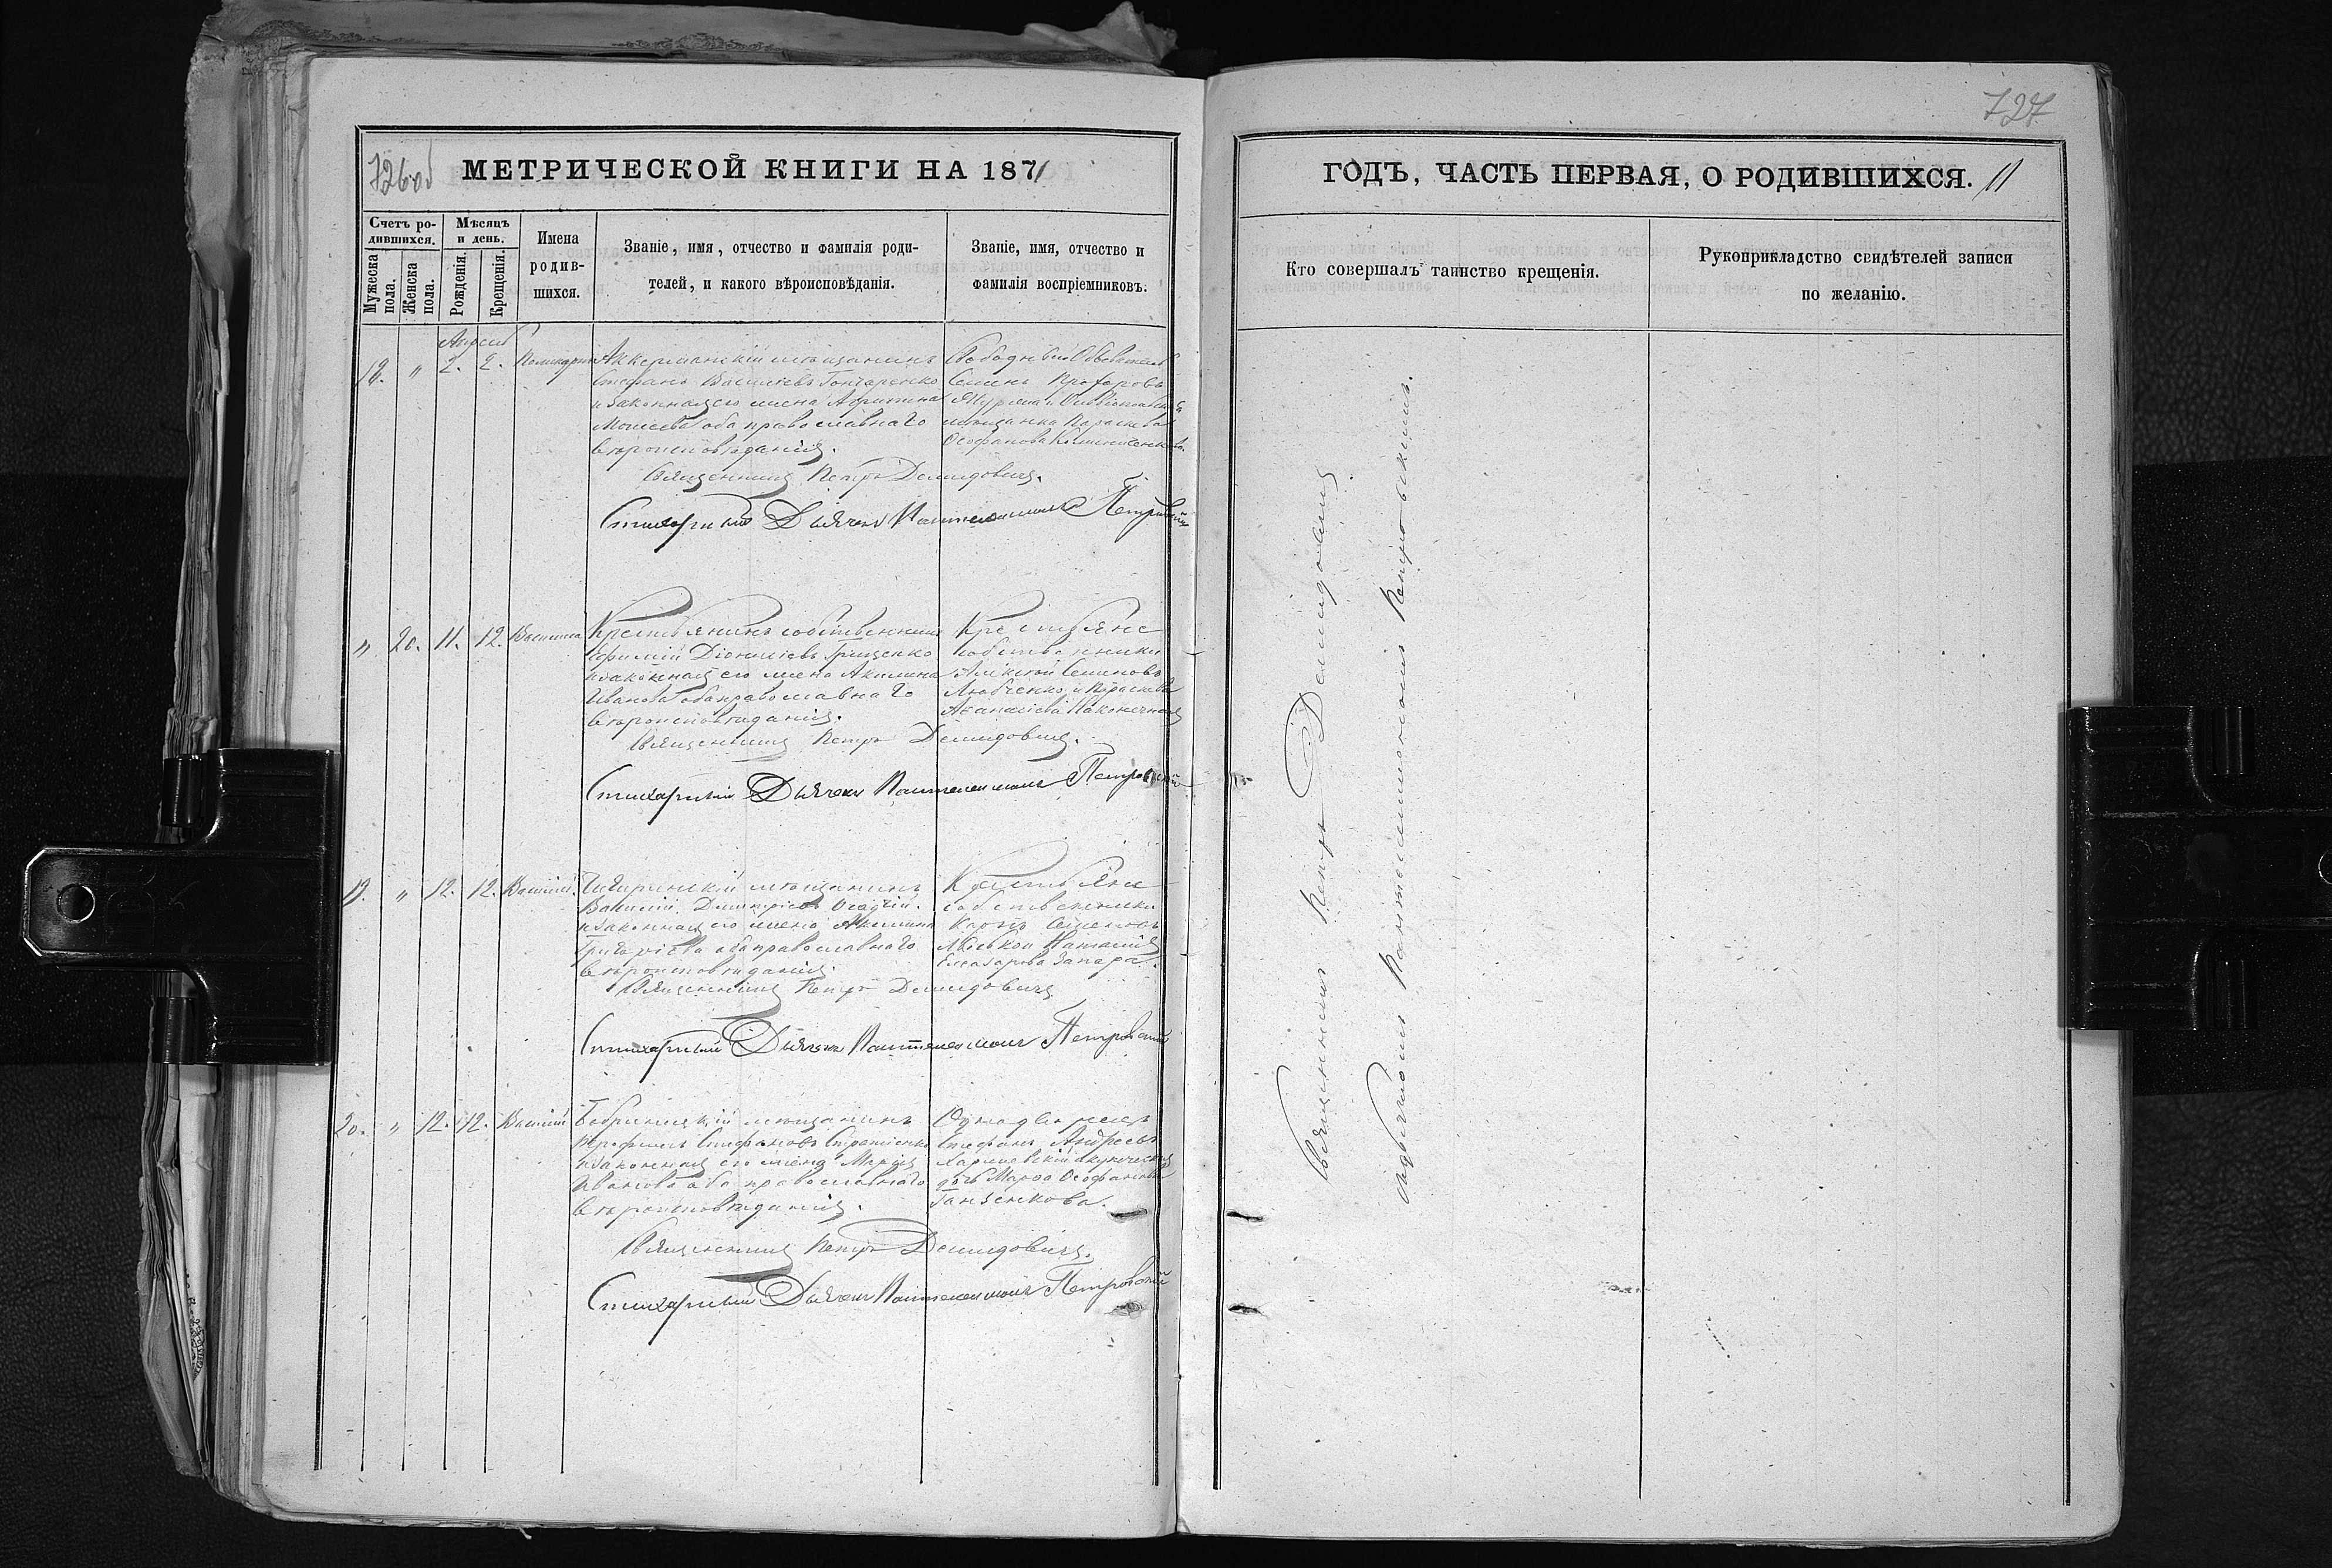 726 об
МЕТРИЧЕСКОЙ КНИГИ НА 1871
Счетъ ро-
дившихся.
Мѣсяцъ
и день.
Мужеска
пола.
Женска
пола.
Рожденія.
Крещенія.
Имена
родив-
шихся.
Званіе, имя, отчество и фамилія роди-
телей, и какого вѣроисповѣданія.
Званіе, имя, отчество и
фамилія воспріемниковъ.
Апрель
18. " 2. 2. Поликарпъ
Аккерманскій мѣщанинъ
Стефанъ Василіевъ Гончаренко
и законная его жена Агрипина
Моисеева оба православнаго
вѣроисповѣданія.
Семенъ Прохоровъ
мѣщанка Параскева
Ѳеофанова
Священникъ Петръ Демидовичъ.
Стихарный Дьячекъ Пантелеимонъ Петровскій
" 20. 11. 12. Василиса
Крестьянинъ собственникъ
Ефимій Діонисіевъ Грищенко
и законная его жена Акилина
Иванова оба православнаго
вѣроисповѣданія.
Крестьяне
собственники
Алексѣй Семеновъ
Любченко и Параскева
Аѳанасіева Наконечная
Священникъ Петръ Демидовичъ.
Стихарный Дьячекъ Пантелеимонъ Петровскій
19. " 12. 12. Василій.
Чигиринскій мѣщанинъ
Василій Димитріевъ Осадчій
и законная его жена Акилина
Григоріева оба православнаго
вѣроисповѣданія.
Крестьяне
собственники
Карпъ Семеновъ
Наталія
Елеазарова Запара.
Священникъ Петръ Демидовичъ
Стихарный Дьячекъ Пантелеимонъ Петровскій
20. " 12. 12. Василій
Бобринецкій мѣщанинъ
Трофимъ Стефановъ
и законная его жена Марія
Иванова оба православнаго
вѣроисповѣданія.
Однодворецъ
Стефанъ Андреевъ
дочь Марѳа Ѳеофанова
Ганзенкова.
Священникъ Петръ Демидовичъ.
Стихарный Дьячекъ Пантелеимонъ Петровскій
727
ГОДЪ, ЧАСТЬ ПЕРВАЯ, О РОДИВШИХСЯ. 11
Кто совершалъ таинство крещенія.
Рукоприкладство свидѣтелей записи
по желанію.
Священникъ Петръ Демидовичъ
съ дьячкомъ Пантелеимономъ Петровскимъ.